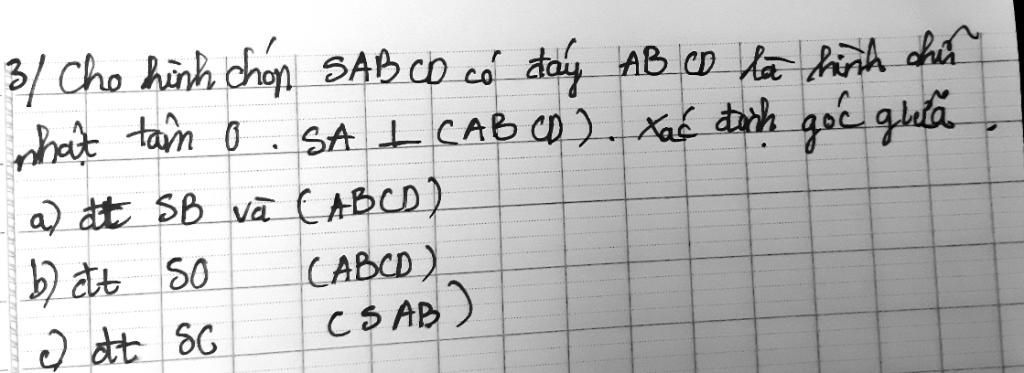 3/ Cho hình chóp SABCD có đáy ABCD là hình chữ
nhật tâm O. SA ⊥ (ABCD). Xác định góc giữa.
a) đt SB và (ABCD)
b) đt SO (ABCD)
c) đt SC (SAB)